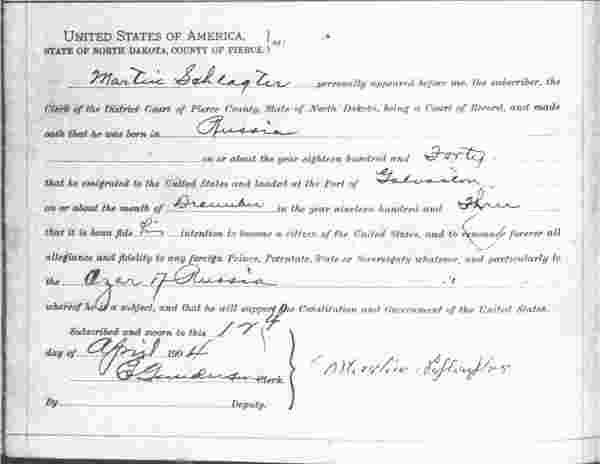 UNITED STATES OF AMERICA,
STATE OF NORTH DAKOTA, COUNTY OF PIERCE. } ss:
Martin Schlagter personally appeared before me, the subscriber, the
Clerk of the District Court of Pierce County, State of North Dakota, being a Court of Record, and made
oath that he was born in Russia
on or about the year eighteen hundred and Forty
that he emigrated to the United States and landed at the Port of Galveston
on or about the month of December in the year nineteen hundred and Three
that it is bona fide his intention to become a citizen of the United States, and to renounce forever all
allegiance and fidelity to any foreign Prince, Potentate, State or Sovereignty whatever, and particularly to
the Czar of Russia
whereof he is a subject, and that he will support the Constitution and Government of the United States.
Subscribed and sworn to this 12
day of April 1904
Clerk
By Deputy.
Martin